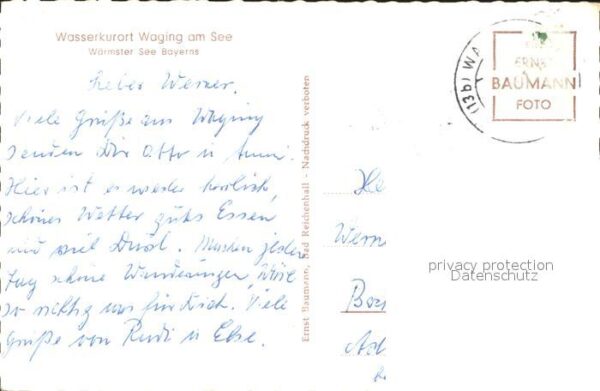 Wasserkurort Waging am See
Wärmster See Bayerns
Lieber Werner.
Viele Grüße aus Waging
senden Dir Otto u. Anni.
Hier ist es wieder herrlich,
schönes Wetter gutes Essen
und viel Durst. Machen jeden
Tag schöne Wanderungen, wäre
so richtig was für Dich. Viele
Grüße von Rudi u. Else.
Ernst Baumann, Bad Reichenhall - Nachdruck verboten
(13b) WA
ERNST
BAUMANN
FOTO
He
Wern
privacy protection
Datenschutz